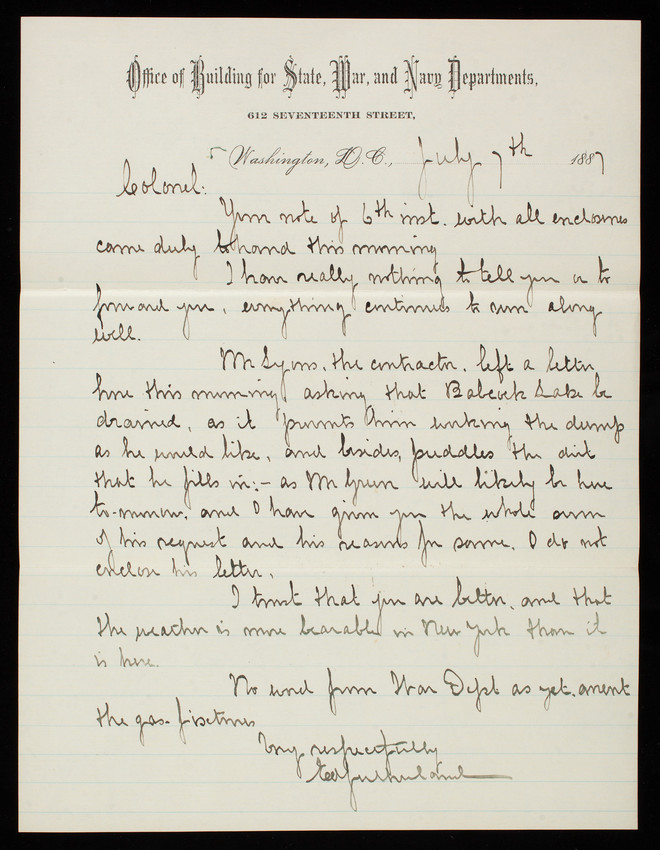 Office of Building for State, War, and Navy Departments,
612 SEVENTEENTH STREET,
Washington, D.C., July 7th 1887
Colonel:
Your note of 6th inst. with all enclosures
came duly to hand this morning
I have really nothing to tell you or to
forward you, everything continues to run along
well.
Mr Lyons, the contractor, left a letter
here this morning asking that Babcock Lake be
drained, as it prevents him working the dump
as he would like, and besides, puddles the dirt
that he fills in:- as Mr Green will likely be here
to-morrow, and I have given you the whole sum
of his request and his reasons for same, I do not
enclose his letter.
I trust that you are better, and that
the weather is more bearable in New York than it
is here.
No word from War Dept as yet, anent
the gas-fixtures
Very respectfully